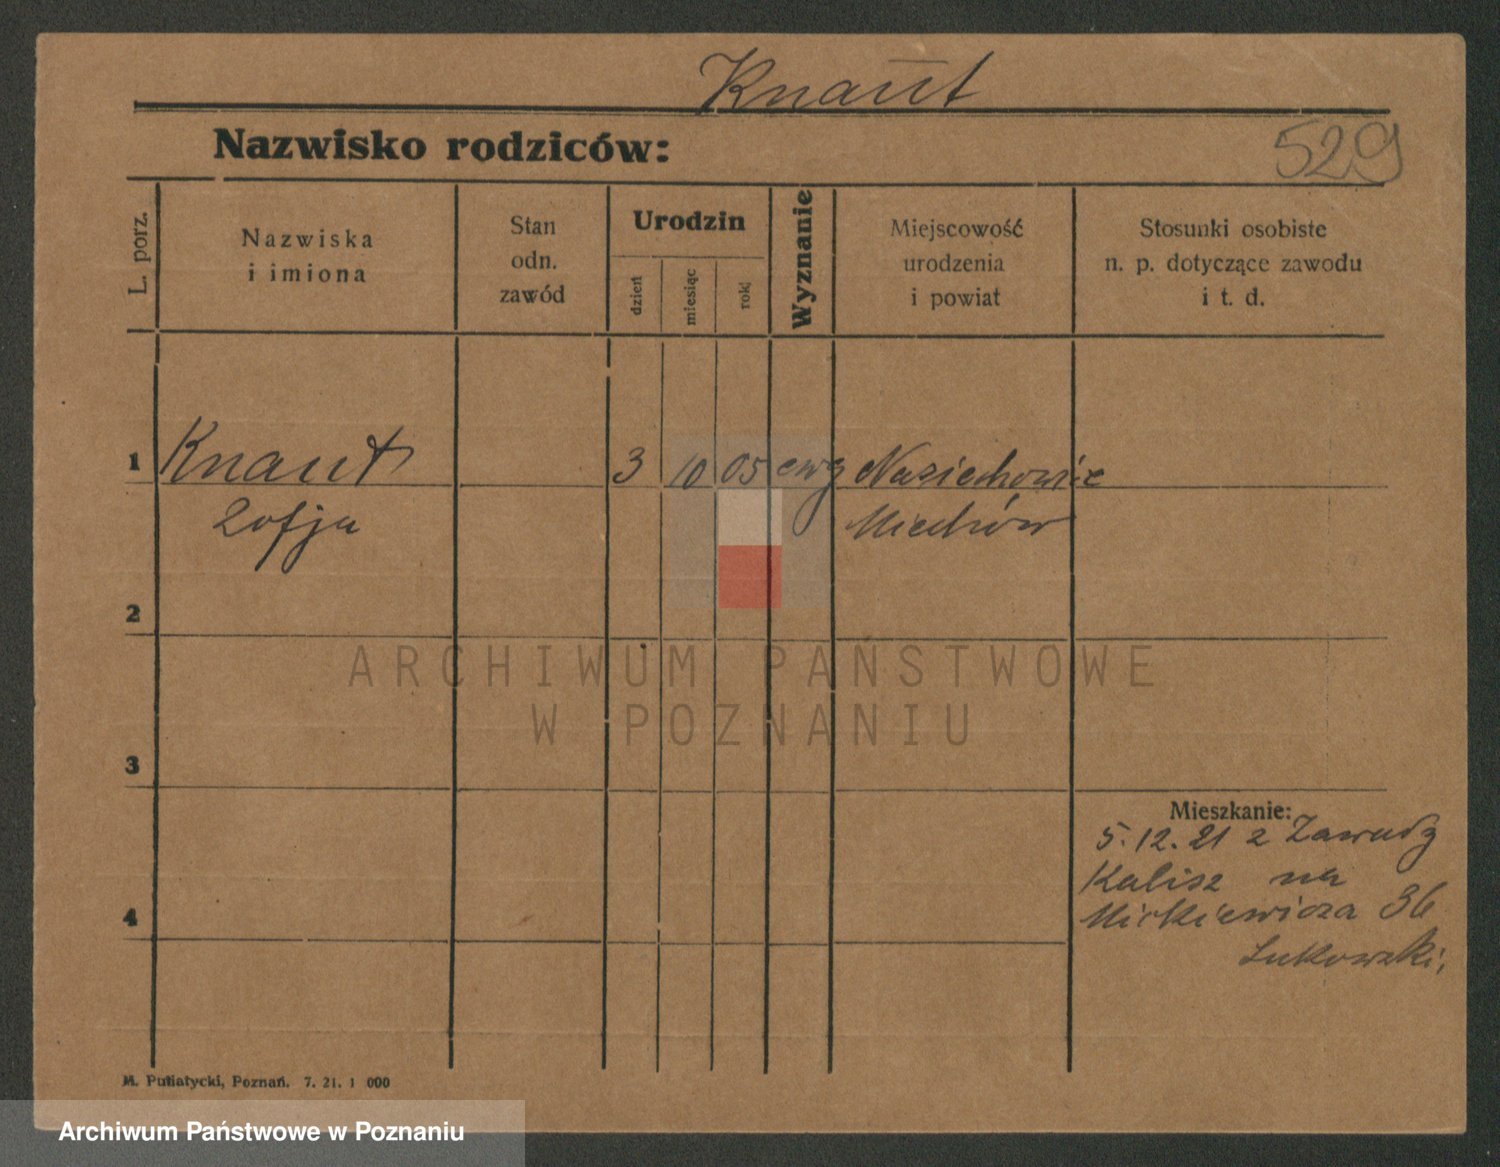 Knaut
Nazwisko rodziców:
529
L. porz.
Nazwiska
i imiona
Stan
odn.
zawód
Urodzin
dzień
miesiąc
rok
Wyznanie
Miejscowość
urodzenia
i powiat
Stosunki osobiste
n. p. dotyczące zawodu
i t. d.
1 Knaut 3 10 05 ewg
Zofja Miechów
2
ARCHIWUM PAŃSTWOWE
W POZNANIU
3
Mieszkanie:
5.12.21 z Zawady
Kalisz na
4 Mickiewicza 36
Lukowski,
M. Putiatycki, Poznań. 7. 21. 1 000
Archiwum Państwowe w Poznaniu